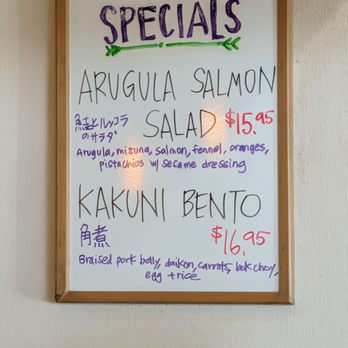 SPECIALS
ARUGULA SALMON
鮭とルッコラ
のサラダ
SALAD $15.95
Arugula, mizuna, salmon, fennel, oranges,
pistachios w/ sesame dressing
KAKUNI BENTO
角煮
$16.95
Braised pork belly, daikon, carrots, bok choy,
egg + rice